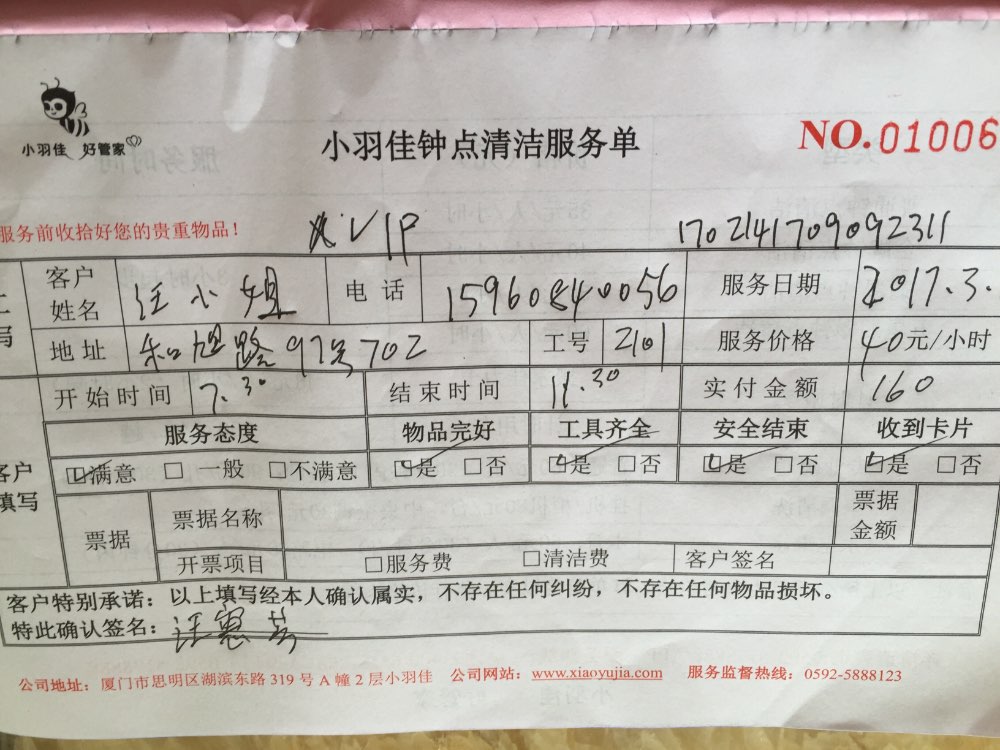 小羽佳 好管家
小羽佳钟点清洁服务单
NO. 01006
服务前收拾好您的贵重物品！
VIP
1702141709092311
客户姓名 汪小姐 电话 15960840056 服务日期 2017.3.
地址 和旭路97号702 工号 2101 服务价格 40元/小时
开始时间 7.30 结束时间 11.30 实付金额 160
服务态度 物品完好 工具齐全 安全结束 收到卡片
客户填写
☑满意 □一般 □不满意 ☑是 □否 ☑是 □否 ☑是 □否 ☑是 □否
票据 票据名称 票据金额
开票项目 □服务费 □清洁费 客户签名
客户特别承诺：以上填写经本人确认属实，不存在任何纠纷，不存在任何物品损坏。
特此确认签名：汪惠芬
公司地址：厦门市思明区湖滨东路 319 号 A 幢 2 层小羽佳 公司网站：www.xiaoyujia.com 服务监督热线：0592-5888123